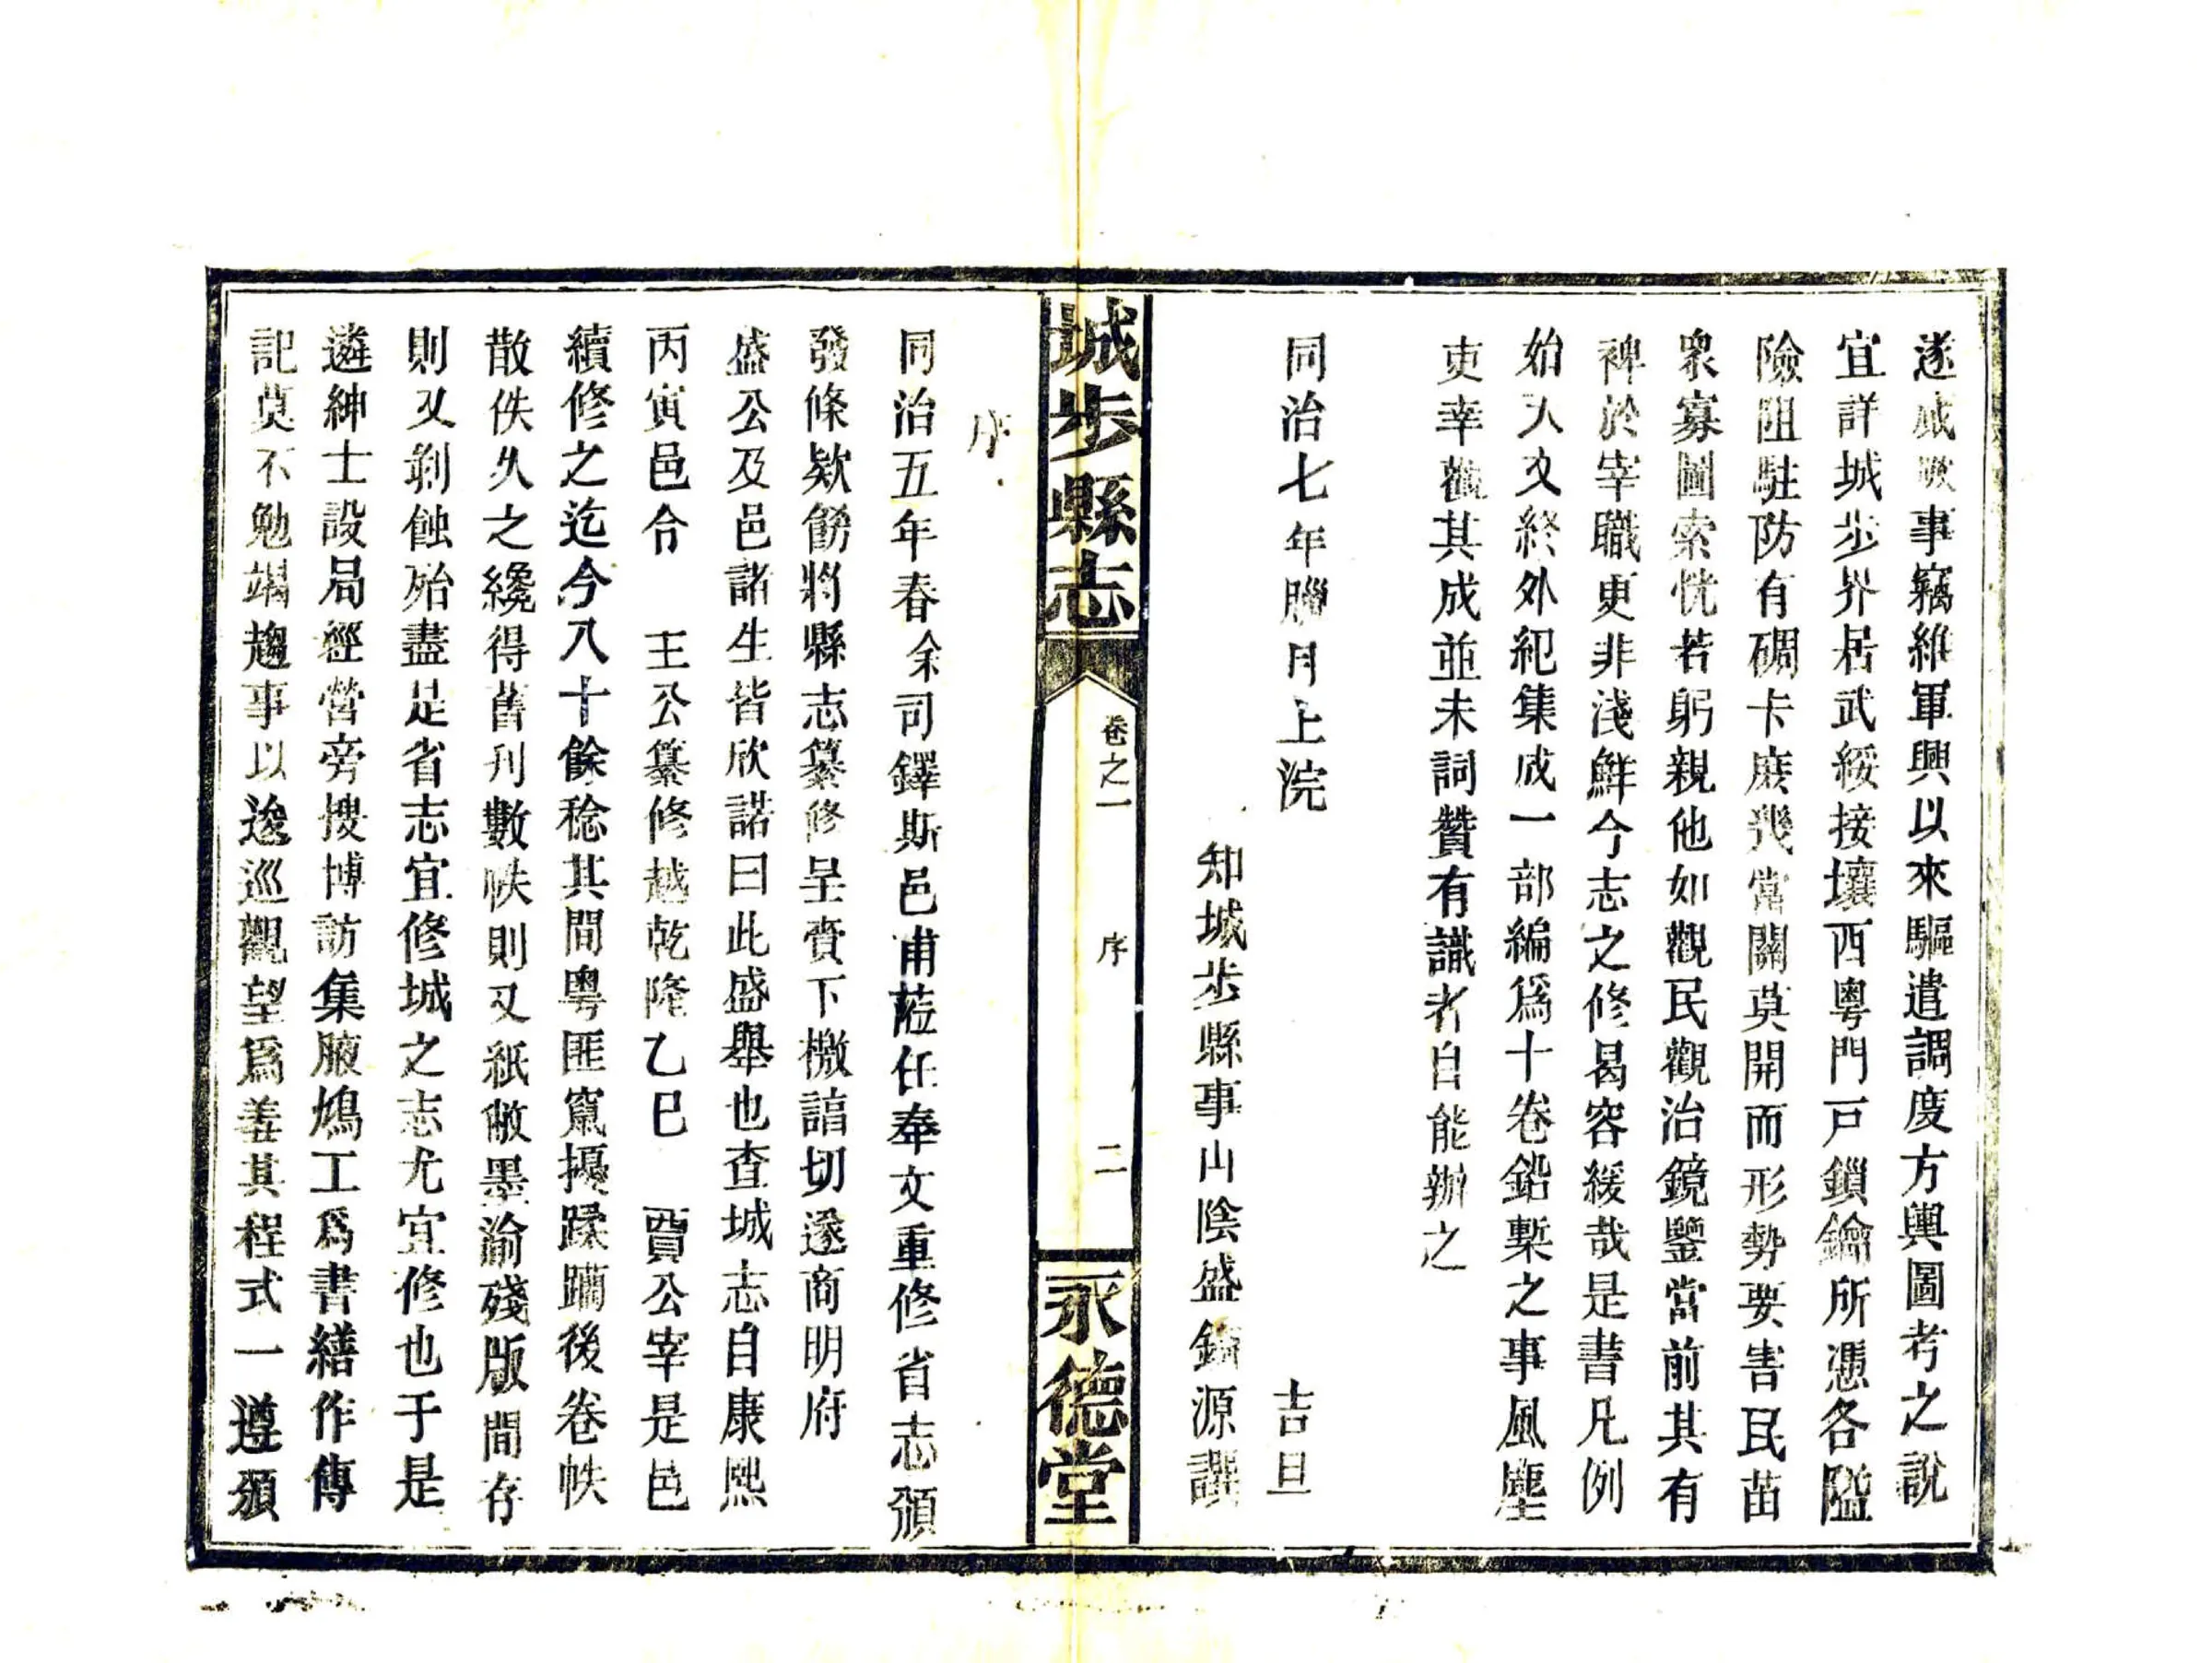 遂咸歟事竊維軍興以來驅遣調度方輿圖考之說
宜詳城步界居武綏接壤西粵門戸鎖鑰所憑各隘
險阻駐防有碉卡庶幾當關莫開而形勢要害民苗
衆寡圖索恍若躬親他如觀民觀治鏡鑒當前其有
裨於宰職更非淺鮮今志之修曷容緩哉是書凡例
始人文終外紀集成一部編爲十卷鉛槧之事風塵
吏幸觀其成並未詞贊有識者自能辦之
同治七年臘月上浣 吉旦
知城步縣事山陰盛鎰源譔
城步縣志 卷之一 序 二 永德堂
序
同治五年春余司鐸斯邑甫蒞任奉文重修省志頒
發條欵飭將縣志纂修呈賫下檄諳切遂商明府
盛公及邑諸生皆欣諾曰此盛舉也查城志自康熙
丙寅邑令 王公纂修越乾隆乙巳 賈公宰是邑
續修之迄今八十餘稔其間粵匪竄擾蹂躪後卷帙
散佚久之纔得舊刋數帙則又紙敝墨渝殘版間存
則又剝蝕殆盡是省志宜修城之志尤宜修也于是
遴紳士設局經營旁搜博訪集腋鳩工爲書繕作傳
記莫不勉竭趨事以逡巡觀望爲善其程式一遵頒